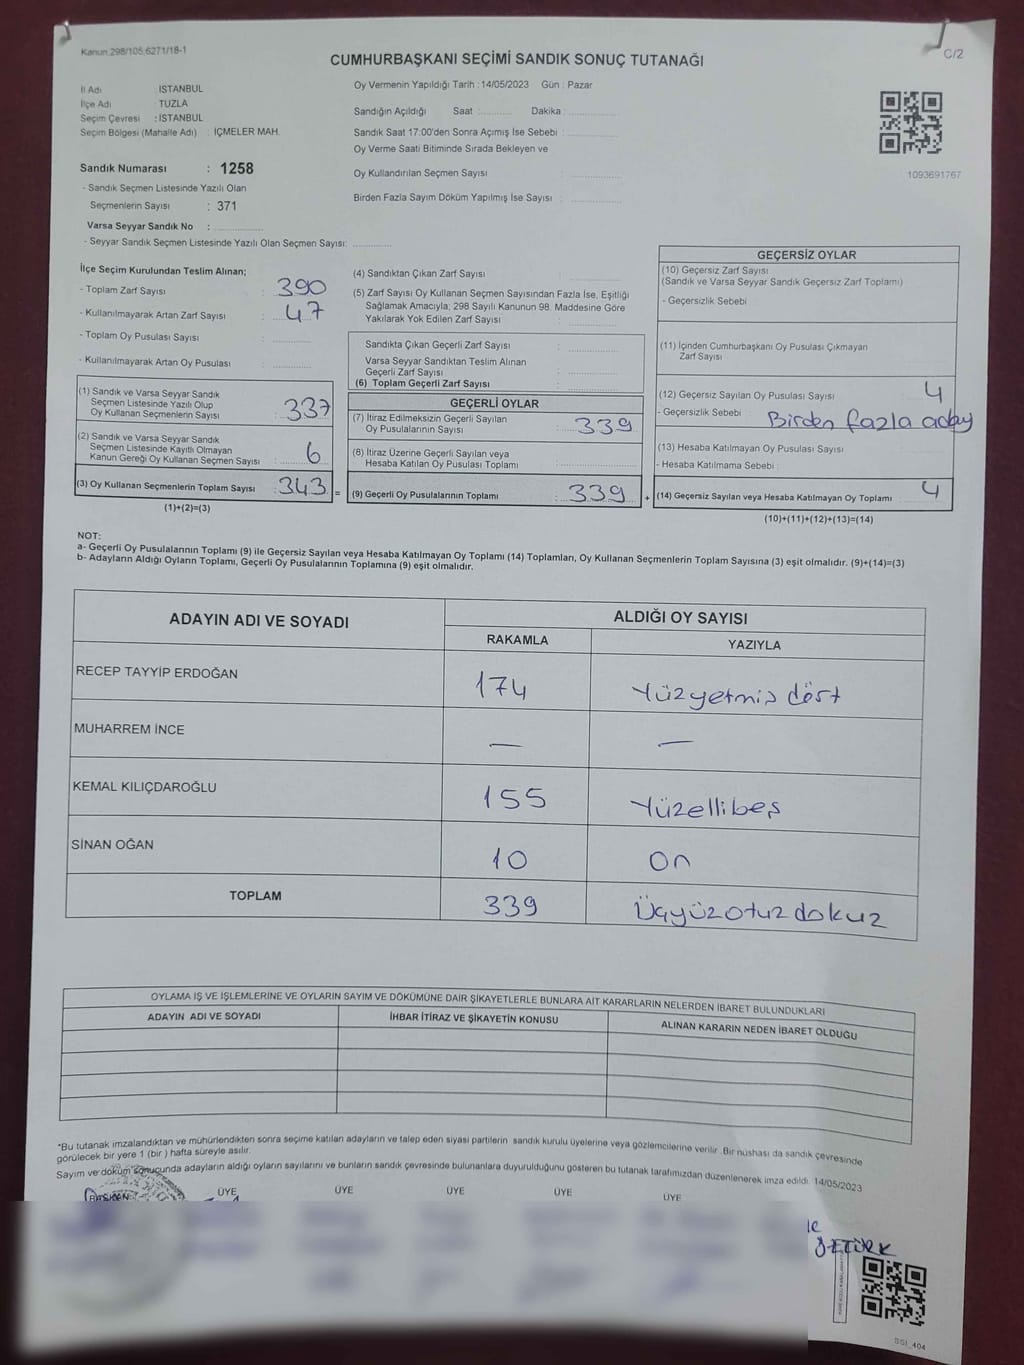 Kanun 298/105,6271/18-1
C/2
CUMHURBAŞKANI SEÇİMİ SANDIK SONUÇ TUTANAĞI
İl Adı : İSTANBUL
İlçe Adı : TUZLA
Seçim Çevresi : İSTANBUL
Seçim Bölgesi (Mahalle Adı) : İÇMELER MAH.
Sandık Numarası : 1258
- Sandık Seçmen Listesinde Yazılı Olan
Seçmenlerin Sayısı : 371
Varsa Seyyar Sandık No :
- Seyyar Sandık Seçmen Listesinde Yazılı Olan Seçmen Sayısı:
Oy Vermenin Yapıldığı Tarih : 14/05/2023 Gün : Pazar
Sandığın Açıldığı Saat : Dakika :
Sandık Saat 17:00'den Sonra Açımış İse Sebebi :
Oy Verme Saati Bitiminde Sırada Bekleyen ve
Oy Kullandırılan Seçmen Sayısı :
Birden Fazla Sayım Döküm Yapılmış İse Sayısı :
1093691767
İlçe Seçim Kurulundan Teslim Alınan;
- Toplam Zarf Sayısı : 390
- Kullanılmayarak Artan Zarf Sayısı : 47
- Toplam Oy Pusulası Sayısı :
- Kullanılmayarak Artan Oy Pusulası :
(1) Sandık ve Varsa Seyyar Sandık
Seçmen Listesinde Yazılı Olup
Oy Kullanan Seçmenlerin Sayısı : 337
(2) Sandık ve Varsa Seyyar Sandık
Seçmen Listesinde Kayıtlı Olmayan
Kanun Gereği Oy Kullanan Seçmen Sayısı : 6
(3) Oy Kullanan Seçmenlerin Toplam Sayısı : 343 =
(1)+(2)=(3)
(4) Sandıktan Çıkan Zarf Sayısı :
(5) Zarf Sayısı Oy Kullanan Seçmen Sayısından Fazla İse, Eşitliği
Sağlamak Amacıyla; 298 Sayılı Kanunun 98. Maddesine Göre
Yakılarak Yok Edilen Zarf Sayısı :
Sandıkta Çıkan Geçerli Zarf Sayısı :
Varsa Seyyar Sandıktan Teslim Alınan
Geçerli Zarf Sayısı :
(6) Toplam Geçerli Zarf Sayısı :
GEÇERLİ OYLAR
(7) İtiraz Edilmeksizin Geçerli Sayılan
Oy Pusulalarının Sayısı : 339
(8) İtiraz Üzerine Geçerli Sayılan veya
Hesaba Katılan Oy Pusulası Toplamı :
(9) Geçerli Oy Pusulalarının Toplamı : 339 +
GEÇERSİZ OYLAR
(10) Geçersiz Zarf Sayısı
(Sandık ve Varsa Seyyar Sandık Geçersiz Zarf Toplamı)
- Geçersizlik Sebebi
(11) İçinden Cumhurbaşkanı Oy Pusulası Çıkmayan
Zarf Sayısı
(12) Geçersiz Sayılan Oy Pusulası Sayısı 4
- Geçersizlik Sebebi Birden fazla aday
(13) Hesaba Katılmayan Oy Pusulası Sayısı
- Hesaba Katılmama Sebebi
(14) Geçersiz Sayılan veya Hesaba Katılmayan Oy Toplamı 4
(10)+(11)+(12)+(13)=(14)
NOT:
a- Geçerli Oy Pusulalarının Toplamı (9) ile Geçersiz Sayılan veya Hesaba Katılmayan Oy Toplamı (14) Toplamları, Oy Kullanan Seçmenlerin Toplam Sayısına (3) eşit olmalıdır. (9)+(14)=(3)
b- Adayların Aldığı Oyların Toplamı, Geçerli Oy Pusulalarının Toplamına (9) eşit olmalıdır.
ADAYIN ADI VE SOYADI ALDIĞI OY SAYISI
RAKAMLA YAZIYLA
RECEP TAYYİP ERDOĞAN 174 Yüzyetmiş dört
MUHARREM İNCE — —
KEMAL KILIÇDAROĞLU 155 Yüzellibeş
SİNAN OĞAN 10 On
TOPLAM 339 Üçyüzotuz dokuz
OYLAMA İŞ VE İŞLEMLERİNE VE OYLARIN SAYIM VE DÖKÜMÜNE DAİR ŞİKAYETLERLE BUNLARA AİT KARARLARIN NELERDEN İBARET BULUNDUKLARI
ADAYIN ADI VE SOYADI İHBAR İTİRAZ VE ŞİKAYETİN KONUSU ALINAN KARARIN NEDEN İBARET OLDUĞU
*Bu tutanak imzalandıktan ve mühürlendikten sonra seçime katılan adayların ve talep eden siyasi partilerin sandık kurulu üyelerine veya gözlemcilerine verilir. Bir nüshası da sandık çevresinde
görülecek bir yere 1 (bir) hafta süreyle asılır.
Sayım ve döküm sonucunda adayların aldığı oyların sayılarını ve bunların sandık çevresinde bulunanlara duyurulduğunu gösteren bu tutanak tarafımızdan düzenlenerek imza edildi. 14/05/2023
BAŞKAN ÜYE ÜYE ÜYE ÜYE ÜYE
SSI_404